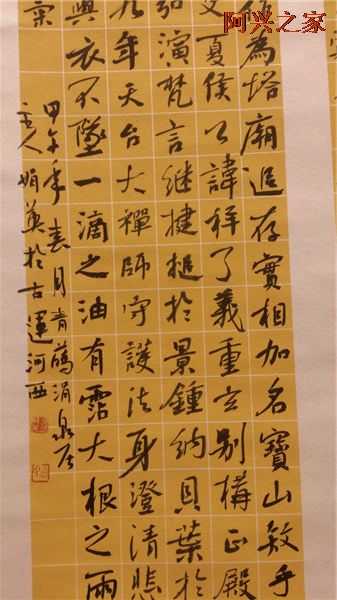 阿兴之家
為塔廟追存實相加名寶山敘手
夏侯公諱祥了義重玄別構正殿
弘演梵言繼揵槌於景鍾納貝葉於
九年天台大禪師守護法身澄清悲
興衣不墜一滴之油有霑大根之雨
宗
甲午年春月青涓泉居
主人娟英於古運河西